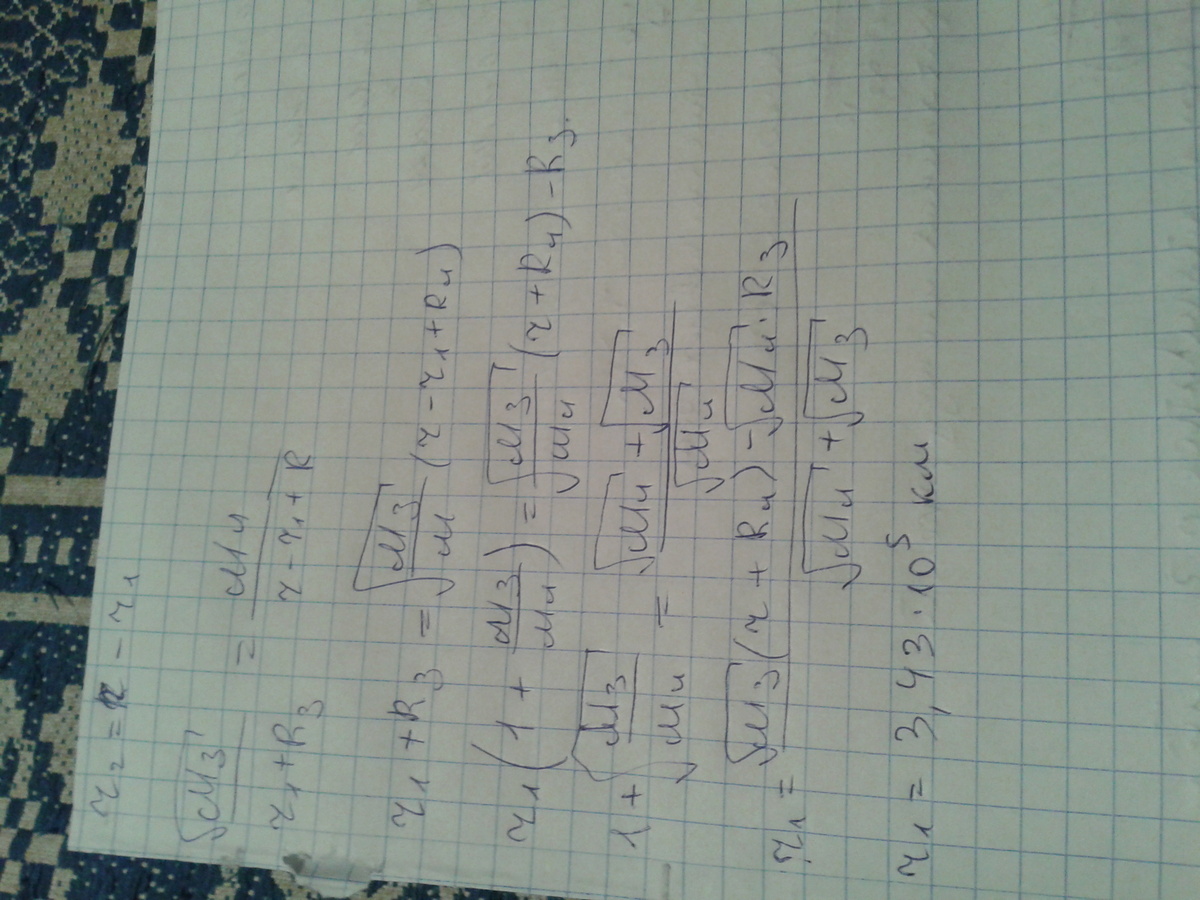 r₂ = r - r₁
√M₃ / (r₁ + R₃) = Mл / (r - r₁ + R)
r₁ + R₃ = √(M₃/M) (r - r₁ + Rл)
r₁(1 + M₃/Mл) = √(M₃/Mл) (r + Rл) - R₃.
1 + √(M₃/Mл) = (√Mл + √M₃) / √Mл
r₁ = (√M₃(r + Rл) - √Mл · R₃) / (√Mл + √M₃)
r₁ = 3,43 · 10⁵ км